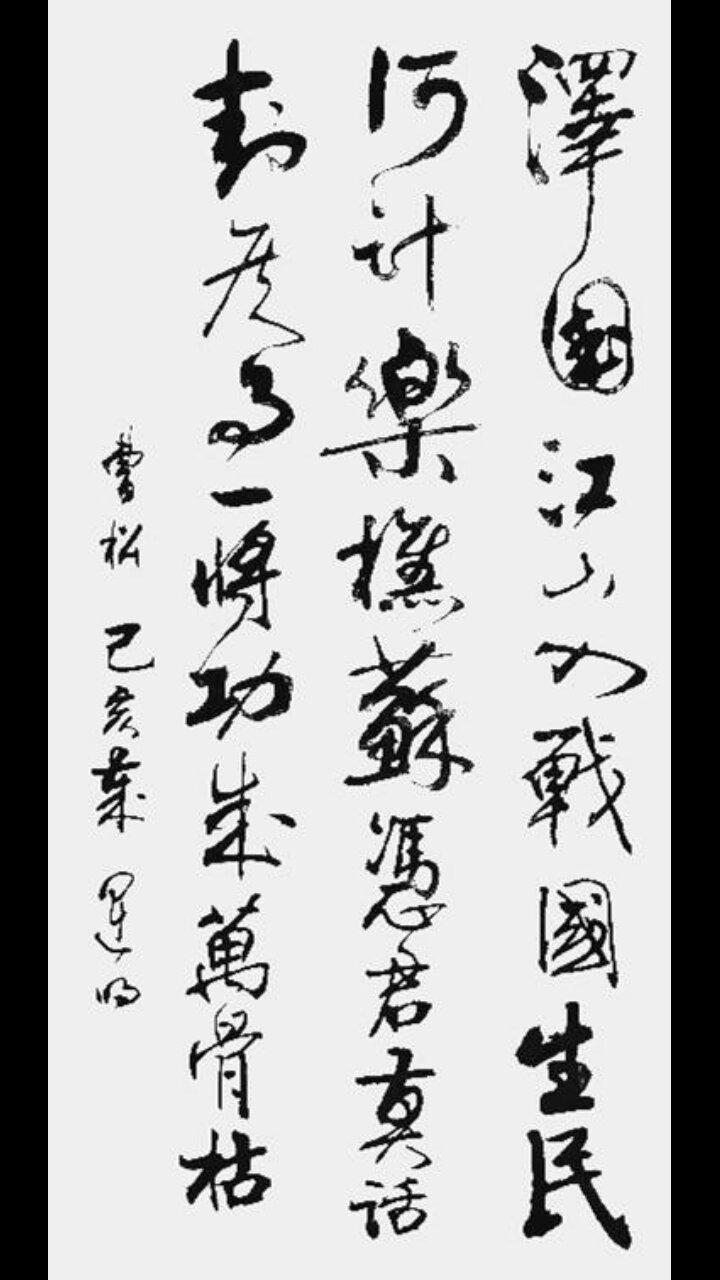 澤國江山入戰國生民
何計樂樵蘇憑君莫話
封侯事一將功成萬骨枯
曹松 己亥歲